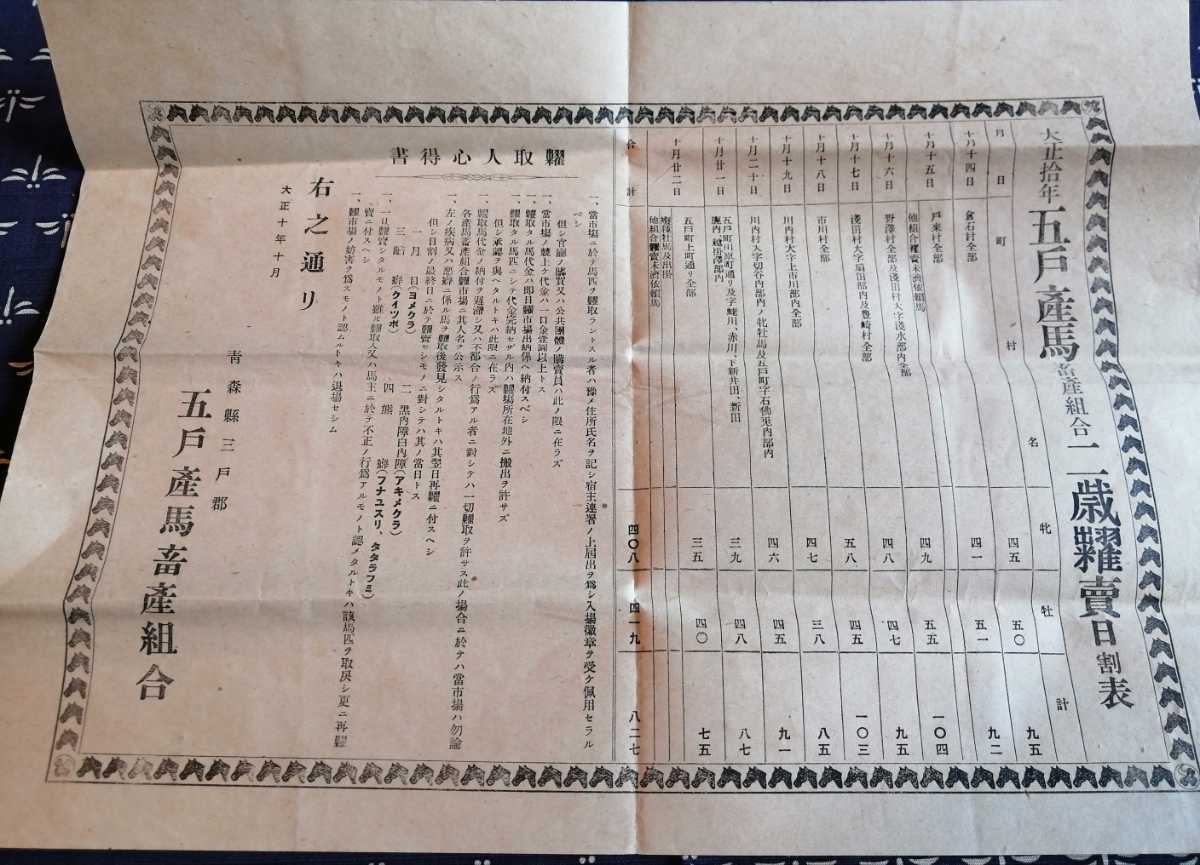 大正拾年五戶產馬畜產組合二歲糶賣日割表
月日 町村名 牝 牡 計
十月十四日 倉石村全部 四五 五〇 九五
十月十五日 戸来村全部 四一 五一 九二
他組合糶賣未濟依賴馬
十月十六日 野澤村全部及淺田村大字淺水部内全部 四九 五五 一〇四
十月十七日 淺田村大字扇田部内及豊崎村全部 四八 四七 九五
十月十八日 市川村全部 五八 四五 一〇三
十月十九日 川内村大字上市川部内全部 四七 三八 八五
十月二十日 川内村大字切谷内部内ノ牝牡馬及五戸町字石佛兎内部内 四六 四五 九一
十月廿一日 五戸町川原町通リ及字蛯川、赤川、下新井田、新田 三九 四八 八七
十月廿二日 五戸町上町通リ全部 三五 四〇 七五
種牡馬及出掛
他組合糶賣未濟依賴馬
合計 四〇八 四一九 八二七
糶取人心得書
一、當市場ニ於テ馬匹ヲ糶取ラントスル者ハ豫メ住所氏名ヲ記シ宿主連署ノ上屆出ヲ爲シ入場徽章ヲ受ケ佩用セラル
ベシ
但シ官廳ノ購買又ハ公共團體ノ購賣員ハ此ノ限ニ在ラズ
一、當市場ノ競上ケ代金ハ一口金壹圓以上トス
一、糶取タル馬代金ハ即日糶市場出納係ヘ納付スベシ
一、糶取タル馬匹ニシテ代金完納セザル内ハ糶場所在地外ニ搬出ヲ許サズ
但シ承認ヲ與ヘタルトキハ此限ニ在ラズ
一、糶取馬代金ノ納付ヲ遲滯シ又ハ不都合ノ行爲アル者ニ對シテハ一切糶取ヲ許サス此ノ場合ニ於テハ當市場ハ勿論
各產馬畜產組合糶市場ニ其人名ヲ公示ス
一、左ノ疾病又ハ惡癖ニ係ル馬ヲ糶取後發見シタルトキハ其翌日再糶ニ付スヘシ
但シ日割ノ最終日ニ於テ糶賣セシモノニ對シテハ其ノ當日トス
一 月日(ヨメクラ) 二 黑内障白内障(アキメクラ)
三 齰癖(クイツボ) 四 熊癖(フナユスリ、タタラフミ)
一、一旦糶賣シタルモノト雖モ糶取人又ハ馬主ニ於テ不正ノ行爲アルモノト認メタルトキハ該馬匹ヲ取戻シ更ニ再糶
賣ニ付スヘシ
一、糶市場ノ妨害ヲ爲スモノト認ムルトキハ退場セシム
右之通リ
大正十年十月
青森縣三戸郡
五戶產馬畜產組合